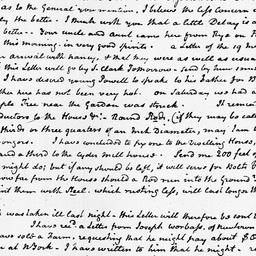 as to the General you mention. I believe the less Concern
the better. I think with you that a little Delay is a
better. Your uncle and aunt came here from Rye on
this morning in very good spirits. a Letter of the 19
arrival with Harry, & that they were as well as usual
this Letter will go by J. Clark Tomorrow. Send by him some
I have desired young Powell to speak to his Father for
ther here has not been very hot. on Saturday we had a
ple Tree near the Garden was struck. It remain
ductors to the House &c. Round Rods, (if they may be call
thirds or three quarters of an Inch Diameter, may I am
longous. I have concluded to fix one to the Dwelling House,
and a third to the Cyder mill house. Send me 200 feet
might do; but if any should be left, it will serve for Bolts
how far from the House should a Rod enter into the Ground?
int them with Steel. which resisting less, will last longer th
was taken ill last night. this Letter will therefore be sent
I have recd. a Letter from Joseph Worbass, of Newtown
have sold a Farm, requesting that he might pay about
at NYork. I have written to him that he might